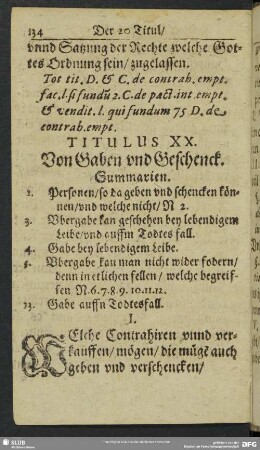 134 Der 20 Titul/
vnnd Satzung der Rechte welche Got-
tes Ordnung sein/ zugelassen.
Tot tit. D. & C. de contrah. empt.
fac. l. si fundū 2. C. de pact. int. empt.
& vendit. l. qui fundum 75 D. de
contrah. empt.
TITULUS XX.
Von Gaben vnd Geschenck.
Summarien.
2. Personen/ so da geben vnd schencken kön-
nen/ vnd welche nicht/ N 2.
3. Vbergabe kan geschehen bey lebendigem
Leibe/ vnd auffm Todtes fall.
4. Gabe bey lebendigem Leibe.
5. Vbergabe kan man nicht wider fodern/
denn in etlichen fellen/ welche begreif-
fen N. 6. 7. 8. 9. 10. 11. 12.
13. Gabe auffn Todtesfall.
I.
WElche Contrahiren vnnd ver-
kauffen/ mögen/ die mügē auch
geben vnd verschencken/
SLUB